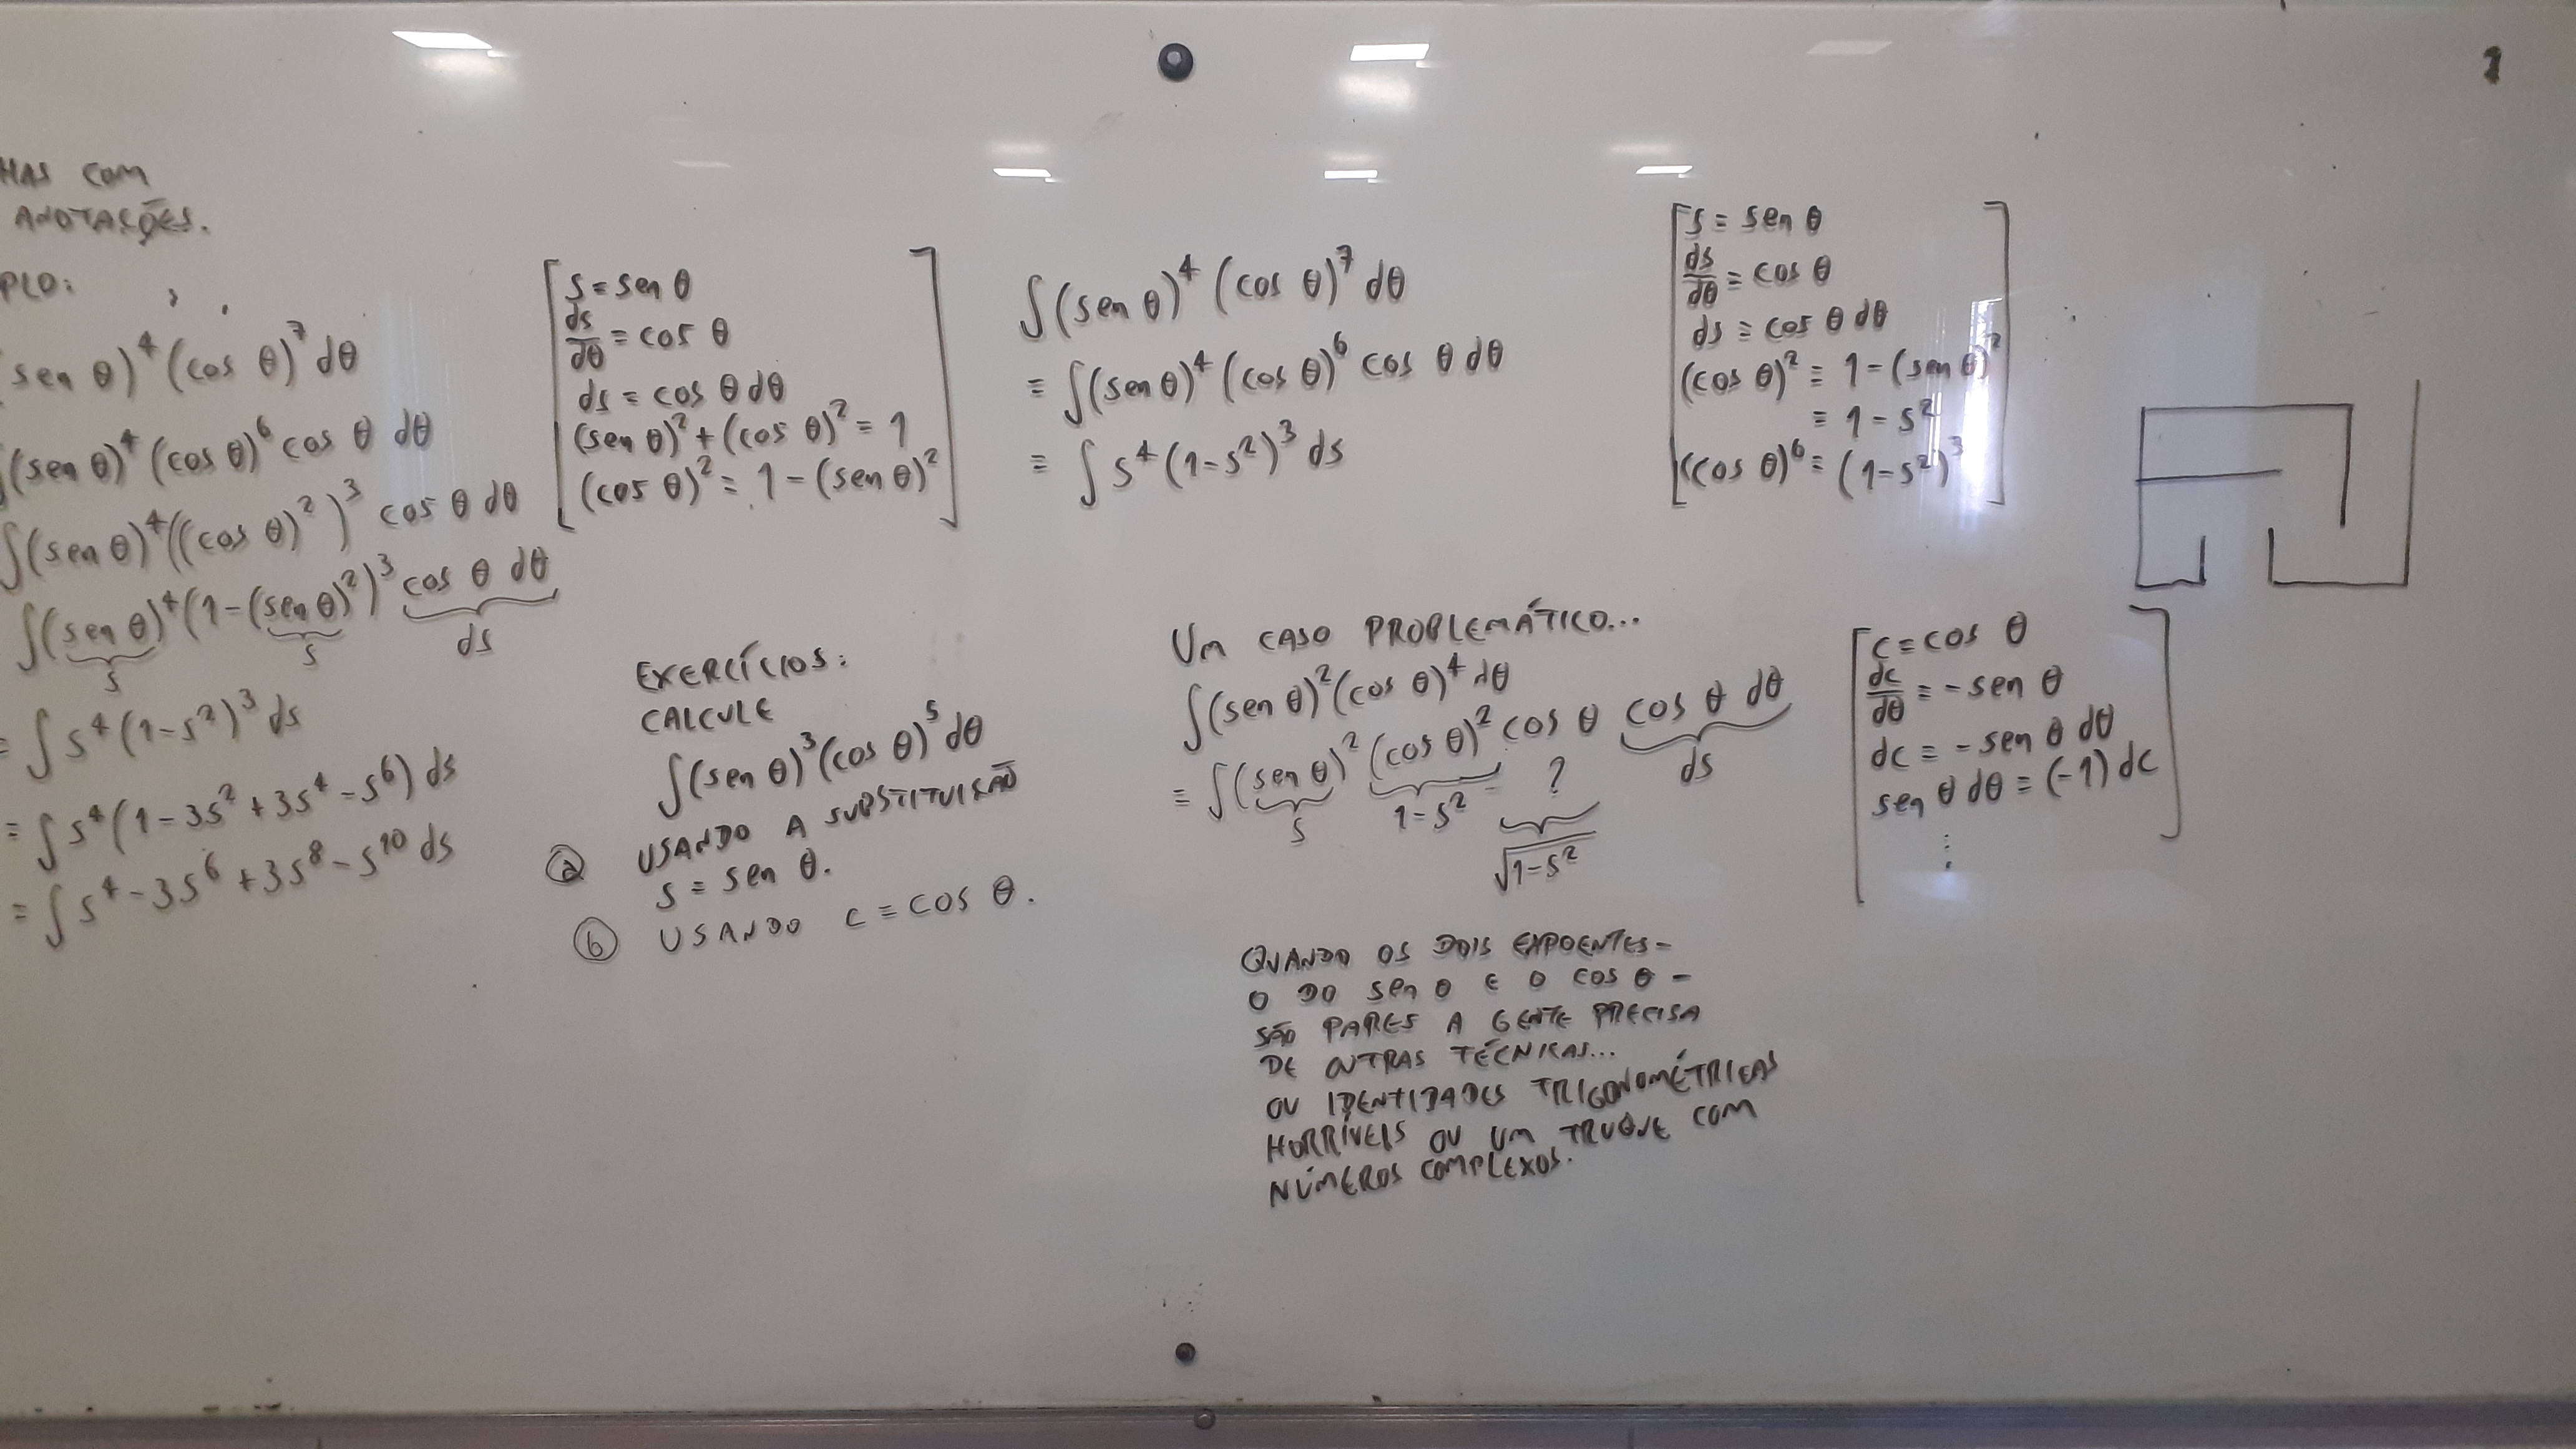 HAS COM
ANOTAÇÕES.
PLO:
sen θ)⁴ (cos θ)⁷ dθ
(sen θ)⁴ (cos θ)⁶ cos θ dθ
∫(sen θ)⁴((cos θ)²)³ cos θ dθ
∫(sen θ)⁴(1-(sen θ)²)³ cos θ dθ
s s ds
= ∫ s⁴ (1-s²)³ ds
= ∫ s⁴ (1-3s²+3s⁴-s⁶) ds
= ∫ s⁴-3s⁶+3s⁸-s¹⁰ ds
s = sen θ
ds/dθ = cos θ
ds = cos θ dθ
(sen θ)²+(cos θ)² = 1
(cos θ)² = 1-(sen θ)²
EXERCÍCIOS:
CALCULE
∫(sen θ)³(cos θ)⁵ dθ
ⓐ USANDO A SUBSTITUIÇÃO
s = sen θ.
ⓑ USANDO c = cos θ.
∫(sen θ)⁴ (cos θ)⁷ dθ
= ∫(sen θ)⁴ (cos θ)⁶ cos θ dθ
= ∫ s⁴ (1-s²)³ ds
s = sen θ
ds/dθ = cos θ
ds = cos θ dθ
(cos θ)² = 1-(sen θ)²
= 1-s²
(cos θ)⁶ = (1-s²)³
UM CASO PROBLEMÁTICO...
∫(sen θ)²(cos θ)⁴ dθ
= ∫(sen θ)² (cos θ)² cos θ cos θ dθ
s 1-s² ? ds
√1-s²
c = cos θ
dc/dθ = -sen θ
dc = -sen θ dθ
sen θ dθ = (-1) dc
⋮
QUANDO OS DOIS EXPOENTES -
O DO sen θ E O cos θ -
SÃO PARES A GENTE PRECISA
DE OUTRAS TÉCNICAS...
OU IDENTIDADES TRIGONOMÉTRICAS
HORRÍVEIS OU UM TRUQUE COM
NÚMEROS COMPLEXOS.